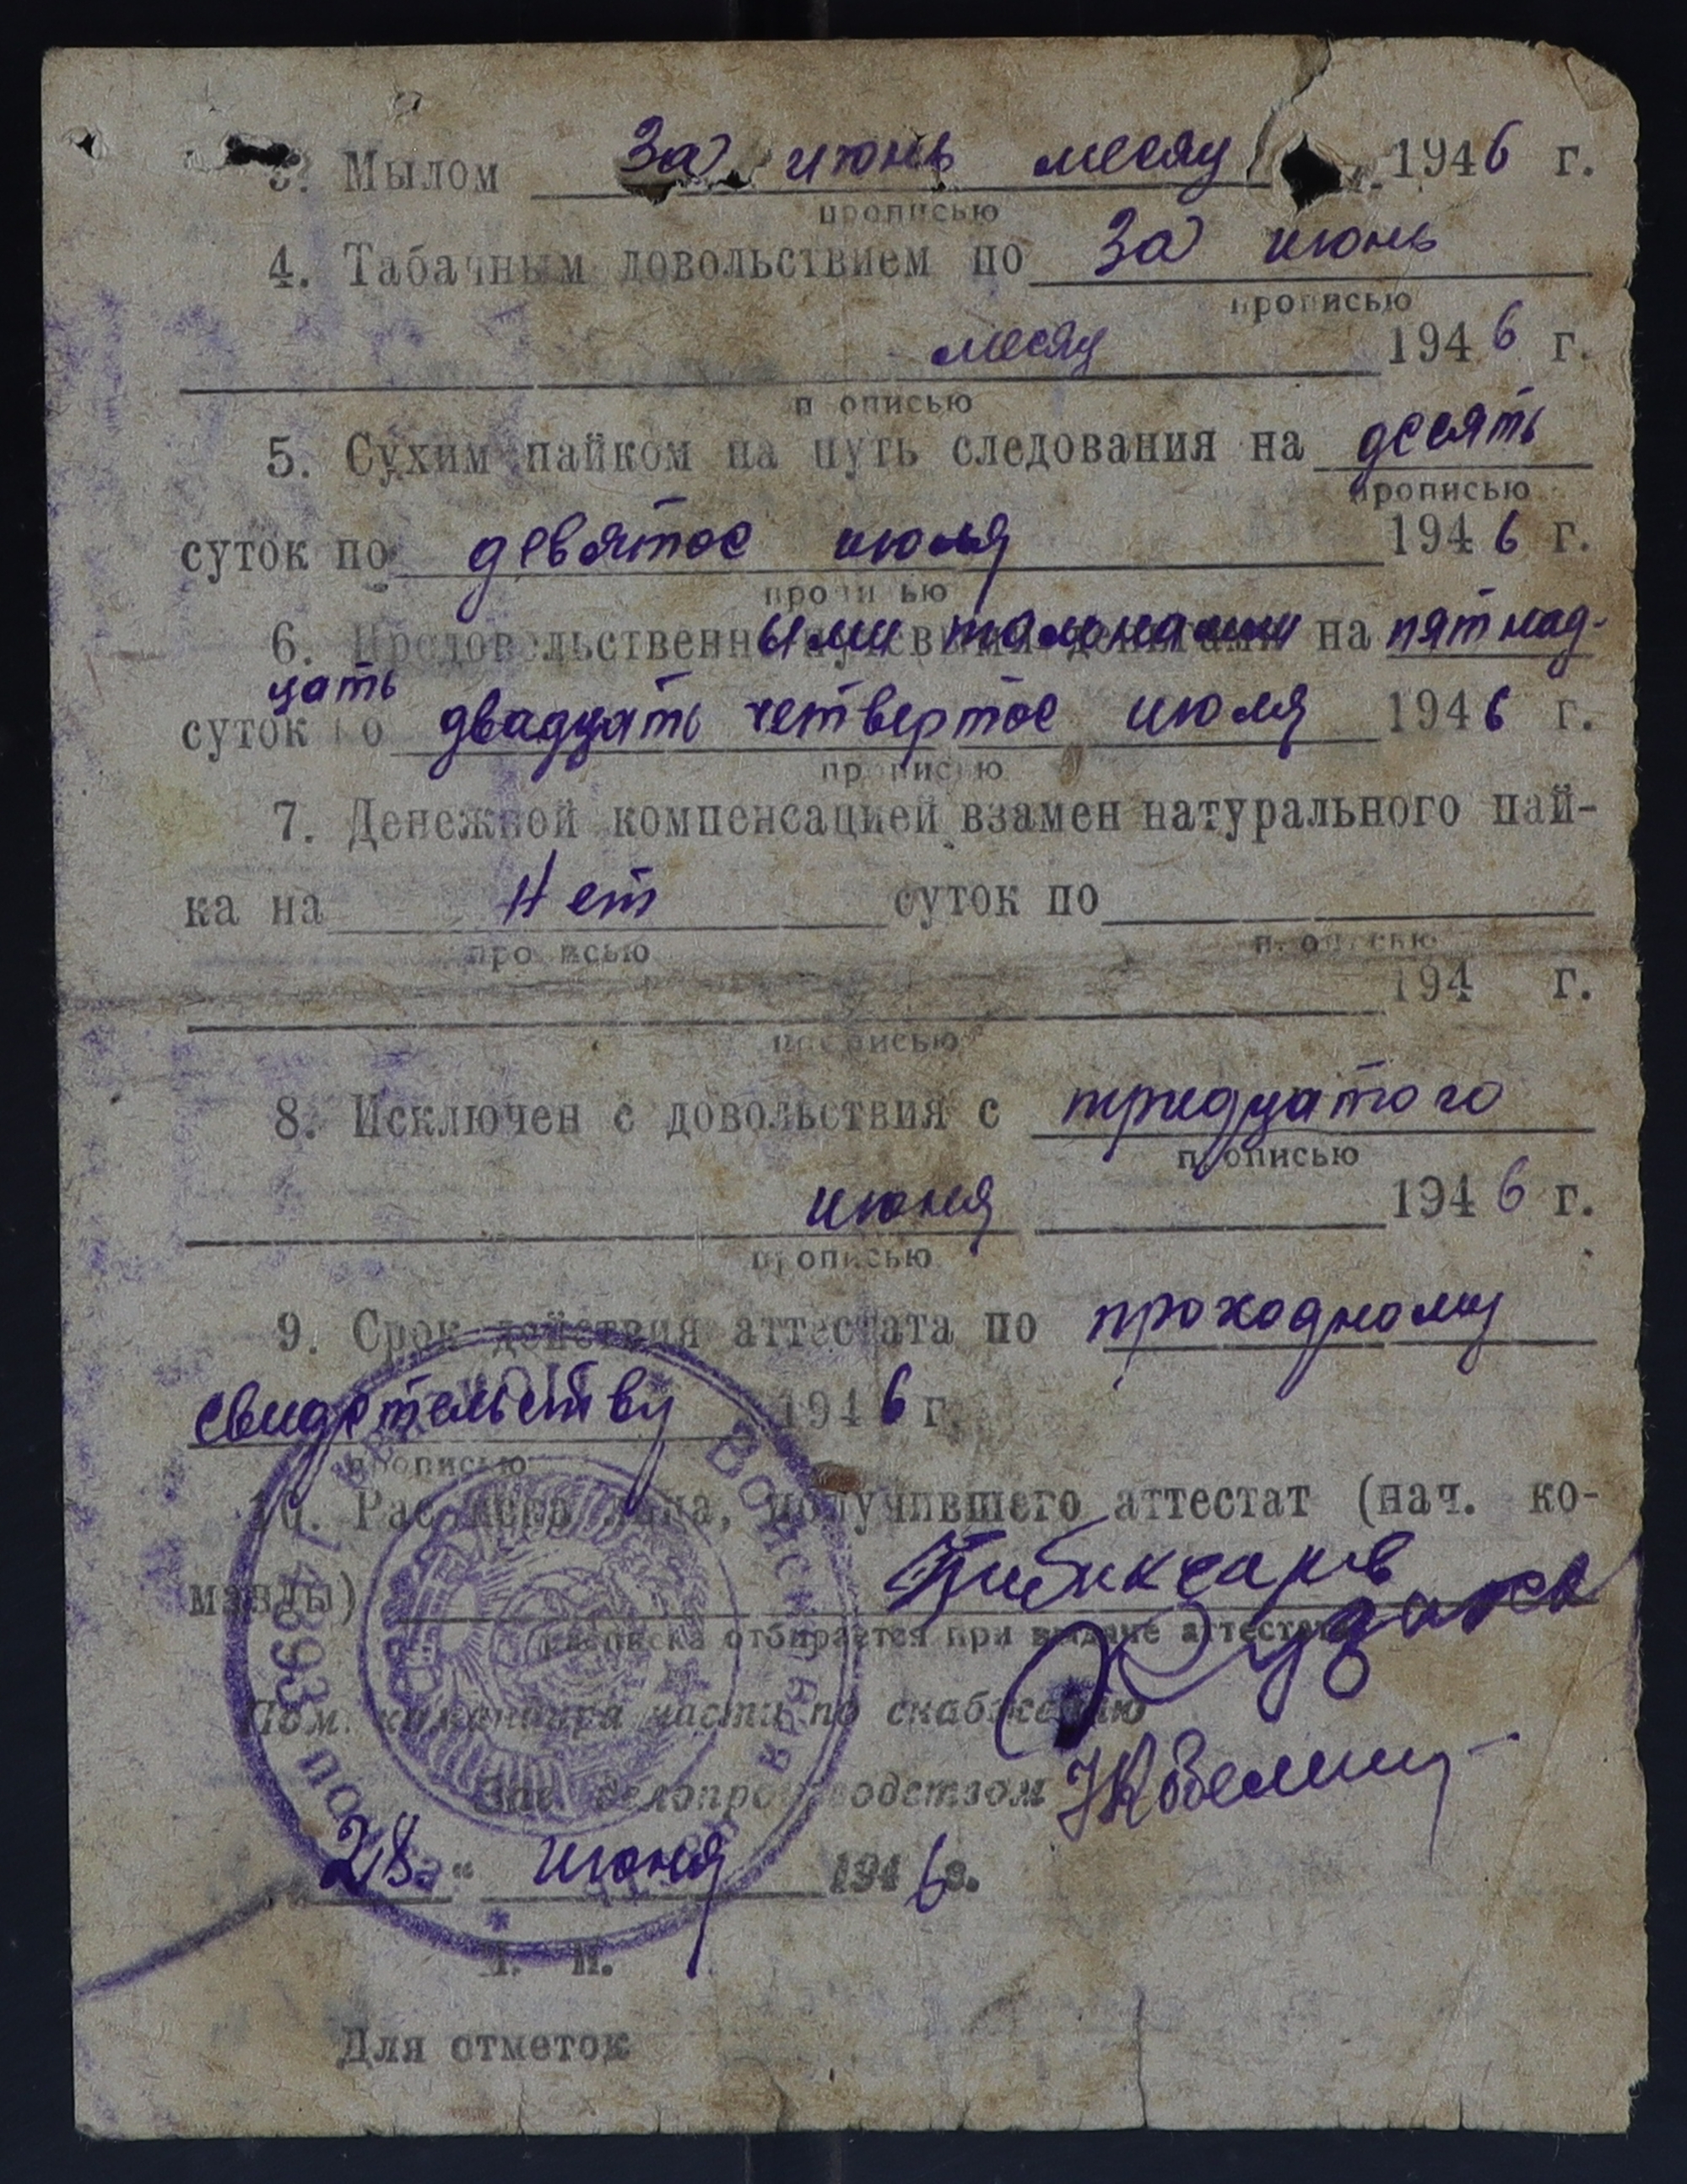 3. Мылом за июнь месяц 1946 г.
прописью
4. Табачным довольствием по за июнь
прописью
месяц 1946 г.
прописью
5. Сухим пайком на путь следования на десять
прописью
суток по девятое июля 1946 г.
прописью
6. Продовольственными талонами на пятнад-
цать
суток по двадцать четвертое июля 1946 г.
прописью
7. Денежной компенсацией взамен натурального пай-
ка на Нет суток по
прописью прописью
194 г.
прописью
8. Исключен с довольствия с тридцатого
прописью
июня 1946 г.
прописью
9. Срок действия аттестата по проходному
свидетельству 1946 г.
прописью
10. Расписка лица, получившего аттестат (нач. ко-
манды)
расписка отбирается при выдаче аттестата
Пом. командира части по снабжению
Зав. делопроизводством
28 " июня 1946 г.
М. П.
Для отметок
Войсковая